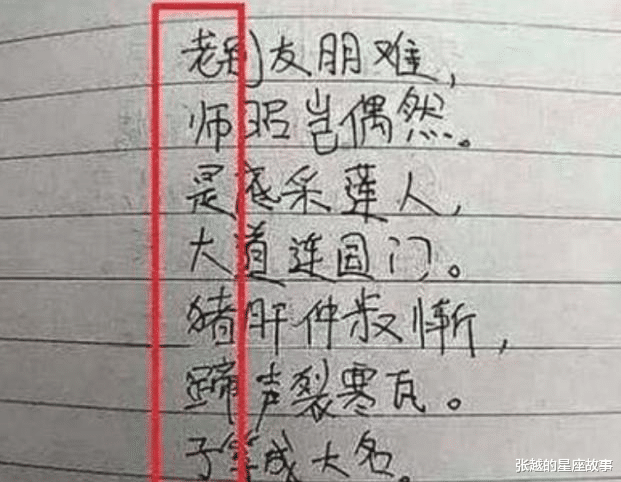 老到友朋难，
师昭岂偶然。
是底采莲人，
大道连国门。
猪肝仲叔惭，
蹄声裂寒瓦。
子等成大名。
张越的星座故事